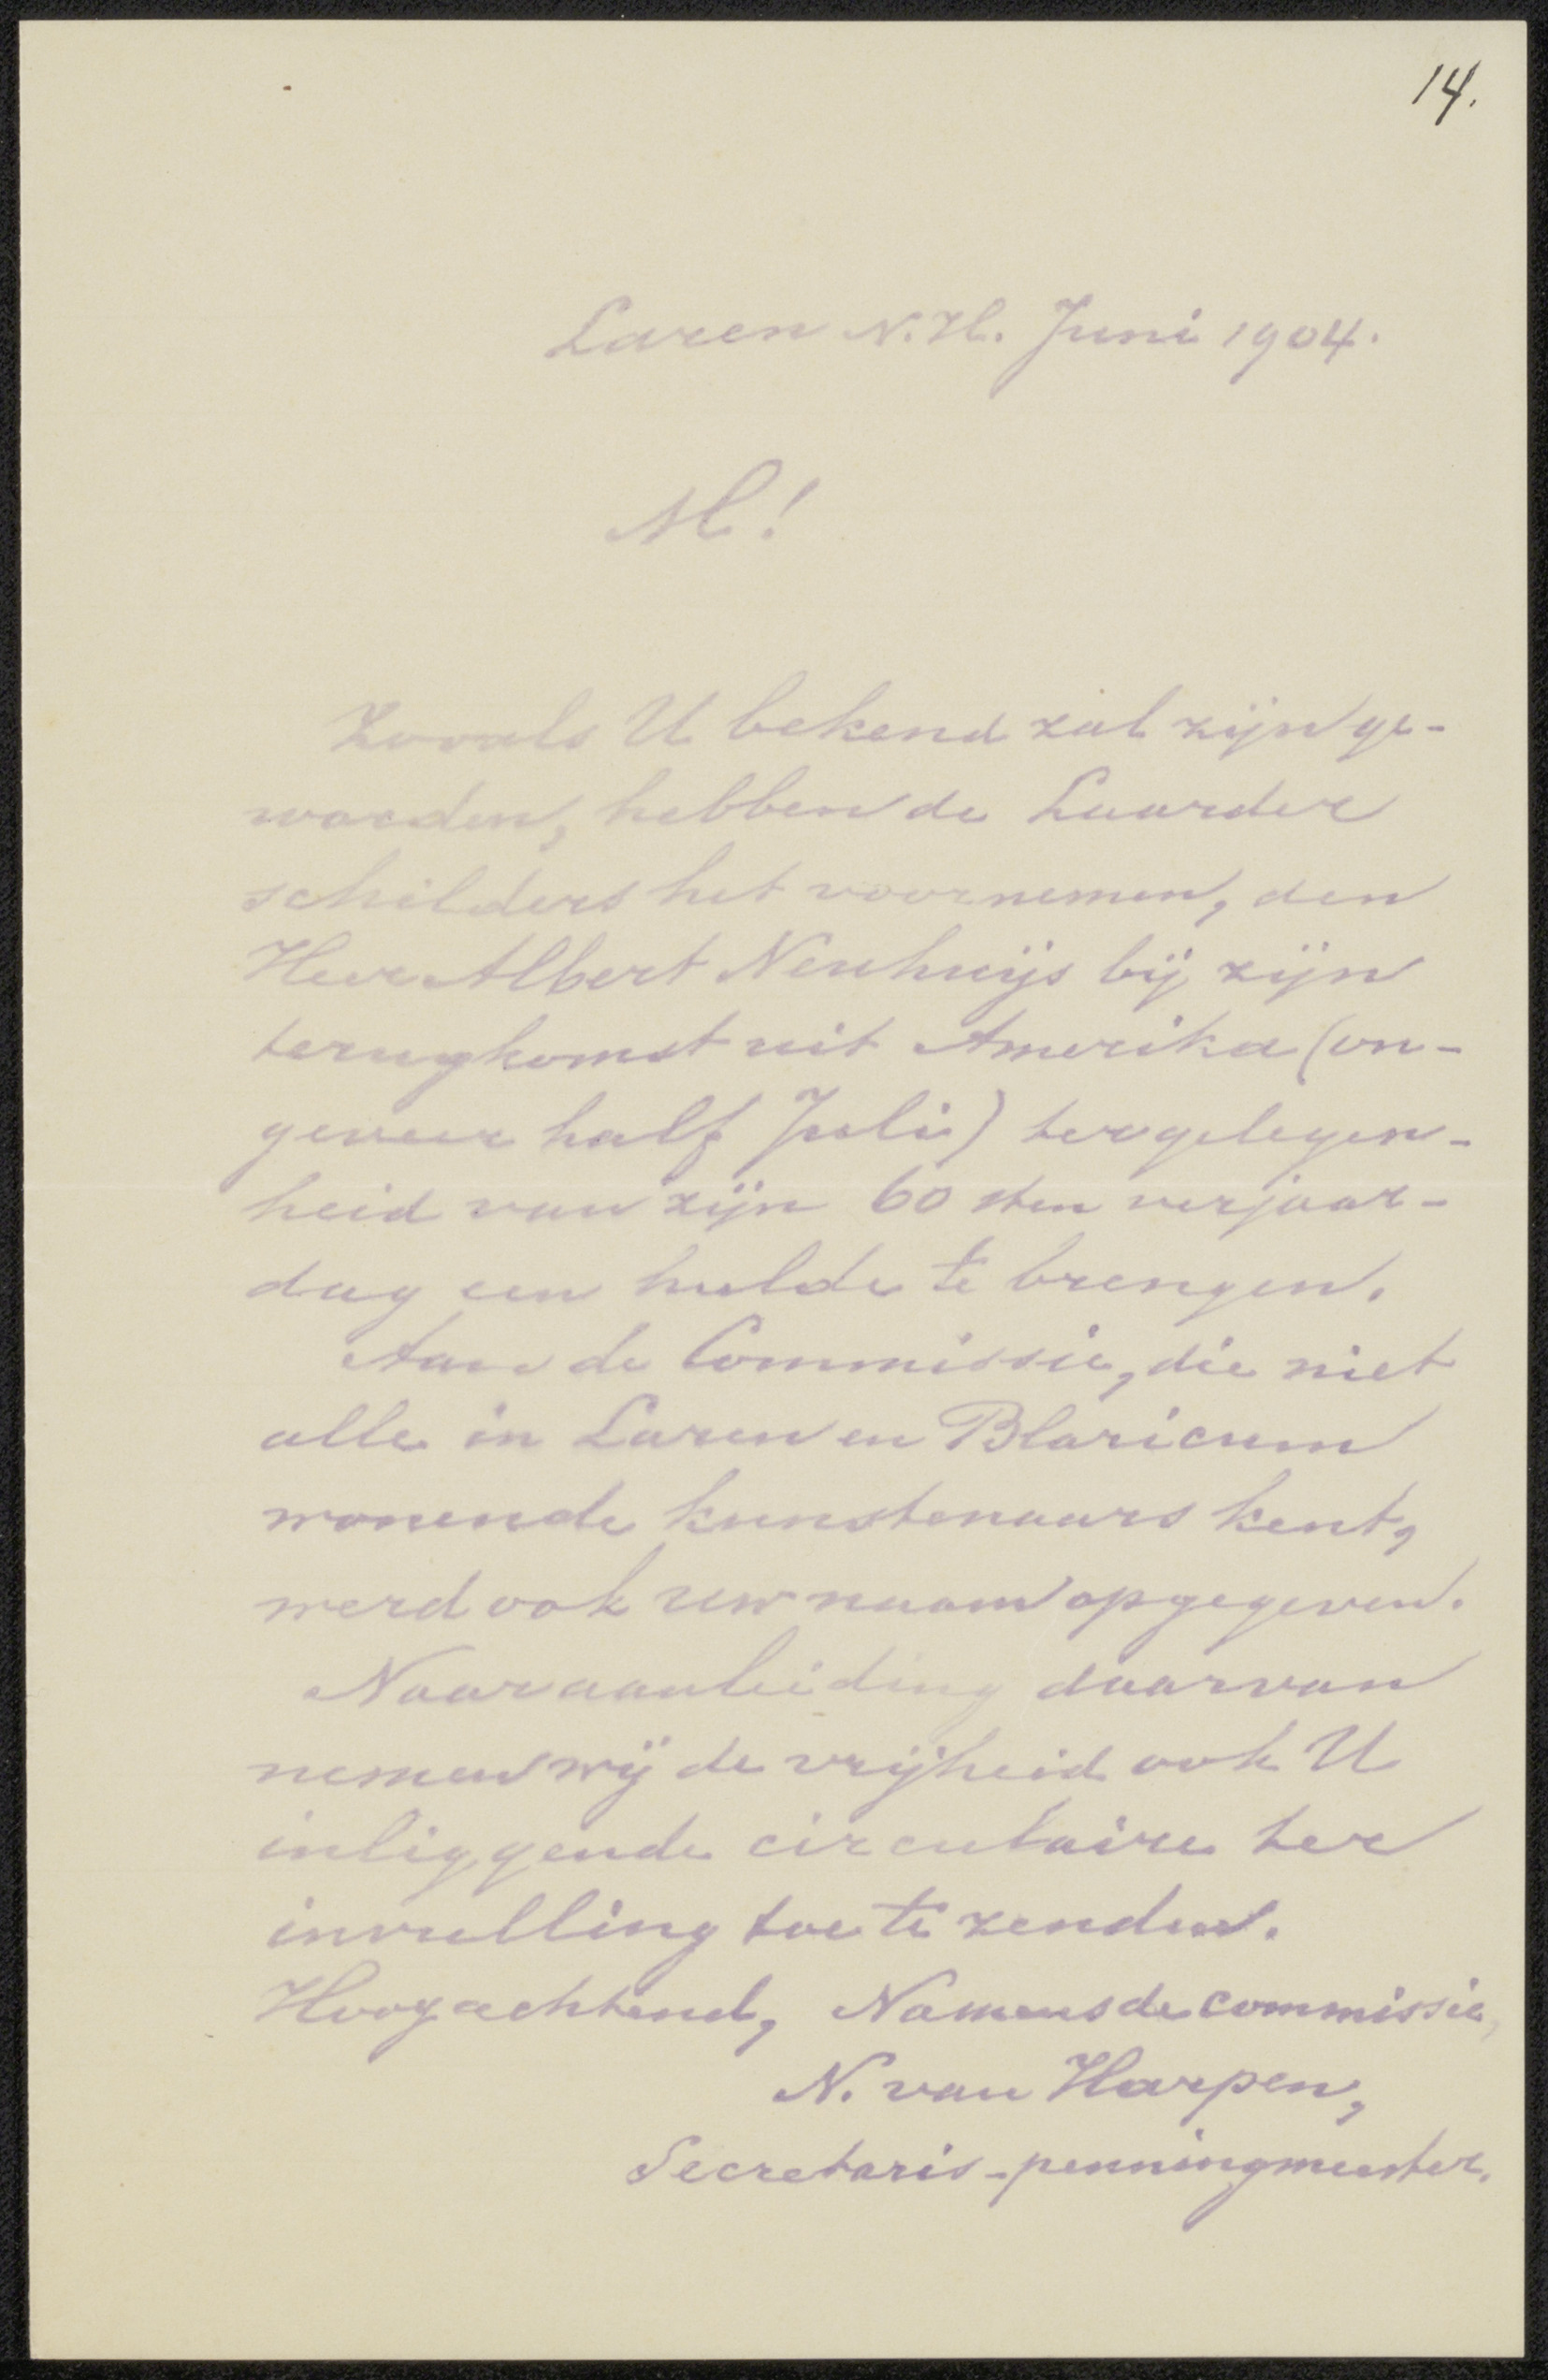 14.
Laren N.H. Juni 1904.
M!
Zooals U bekend zal zijn ge-
worden, hebben de Laarder
schilders het voornemen, den
Heer Albert Neuhuijs bij zijn
terugkomst uit Amerika (on-
geveer half Juli) ter gelegen-
heid van zijn 60 sten verjaar-
dag een hulde te brengen.
Aan de Commissie, die niet
alle in Laren en Blaricum
wonende kunstenaars kent,
werd ook uw naam opgegeven.
Naar aanleiding daarvan
nemen wij de vrijheid ook U
inliggende circulaire ter
invulling toe te zenden.
Hoogachtend, Namens de commissie,
N. van Harpen,
Secretaris-penningmeester.